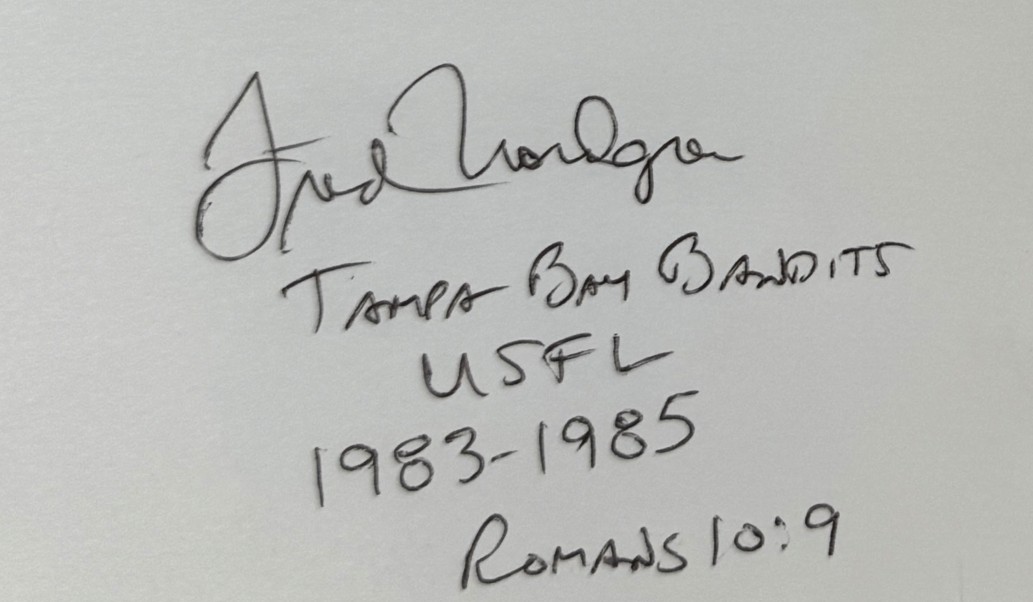 Fred Nordgren
Tampa Bay Bandits
USFL
1983-1985
Romans 10:9